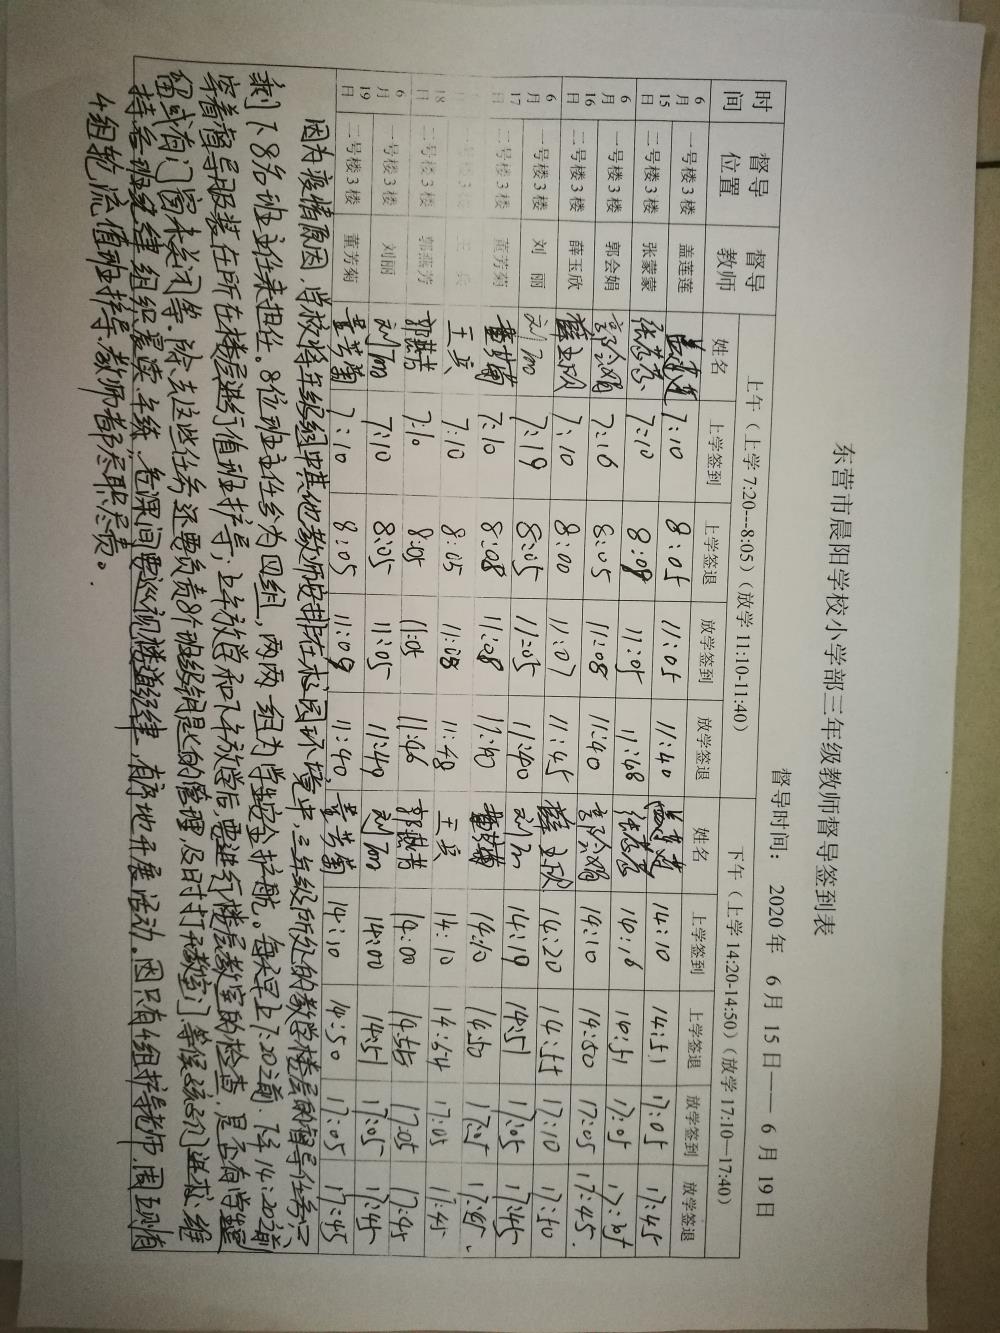 东营市晨阳学校小学部三年级教师督导签到表
督导时间： 2020年 6月 15日—— 6月 19日
时间 督导位置 督导教师 上午（上学7:20---8:05）（放学11:10-11:40） 下午（上学14:20-14:50）（放学17:10—17:40）
姓名 上学签到 上学签退 放学签到 放学签退 姓名 上学签到 上学签退 放学签到 放学签退
6月15日 一号楼3楼 盖莲莲 7:10 8:05 11:05 11:40 14:10 14:51 17:05 17:45
二号楼3楼 张蒙蒙 张蒙蒙 7:10 8:09 11:05 11:48 张蒙蒙 14:16 14:51 17:05
6月16日 一号楼3楼 郭会娟 郭会娟 7:16 8:05 11:08 11:40 郭会娟 14:10 14:50 17:05 17:45.
二号楼3楼 薛玉欣 薛玉欣 7:10 8:00 11:07 11:45 薛玉欣 14:20 14:55 17:10 17:50
6月17日 一号楼3楼 刘 丽 刘丽 7:19 8:05 11:05 11:40 刘丽 14:19 14:51 17:05 17:45
二号楼3楼 董芳菊 董芳菊 7:10 8:08 11:08 11:40 董芳菊 14:10 14:50 17:05 17:45.
18 3楼 王 兵 王兵 7:10 8:05 11:08 11:48 王兵 14:10 14:54 17:05 17:45
日 二号楼3楼 郭燕芳 郭燕芳 7:10 8:05 11:05 11:46 郭燕芳 14:00 14:55 17:05 17:45
6月19日 一号楼3楼 刘丽 刘丽 7:10 8:05 11:05 11:40 刘丽 14:00 14:51 17:05 17:45
二号楼3楼 董芳菊 董芳菊 7:10 8:05 11:09 11:40 董芳菊 14:10 14:50 17:05 17:45
因为疫情原因，学校将年级组中其他教师安排在校园环境中，三年级所处的教学楼层的督导任务只
剩下8名班主任来担任。8位班主任分为四组，两两一组为学生安全护航。每天早上7:20之前、下午14:20之前
穿着督导服装在所在楼层进行值班护导，上午放学和下午放学后，要进行楼层教室的检查，是否有学生逗
留或有门窗未关闭等。除去这些任务还要负责8个班级钥匙的管理，及时打开教室门等候孩子们进校；维
持各班纪律，组织晨读、午练；各课间要巡视楼道纪律，有序地开展活动。因只有4组护导老师，周五则有
4组轮流值班护导，教师都尽职尽责。